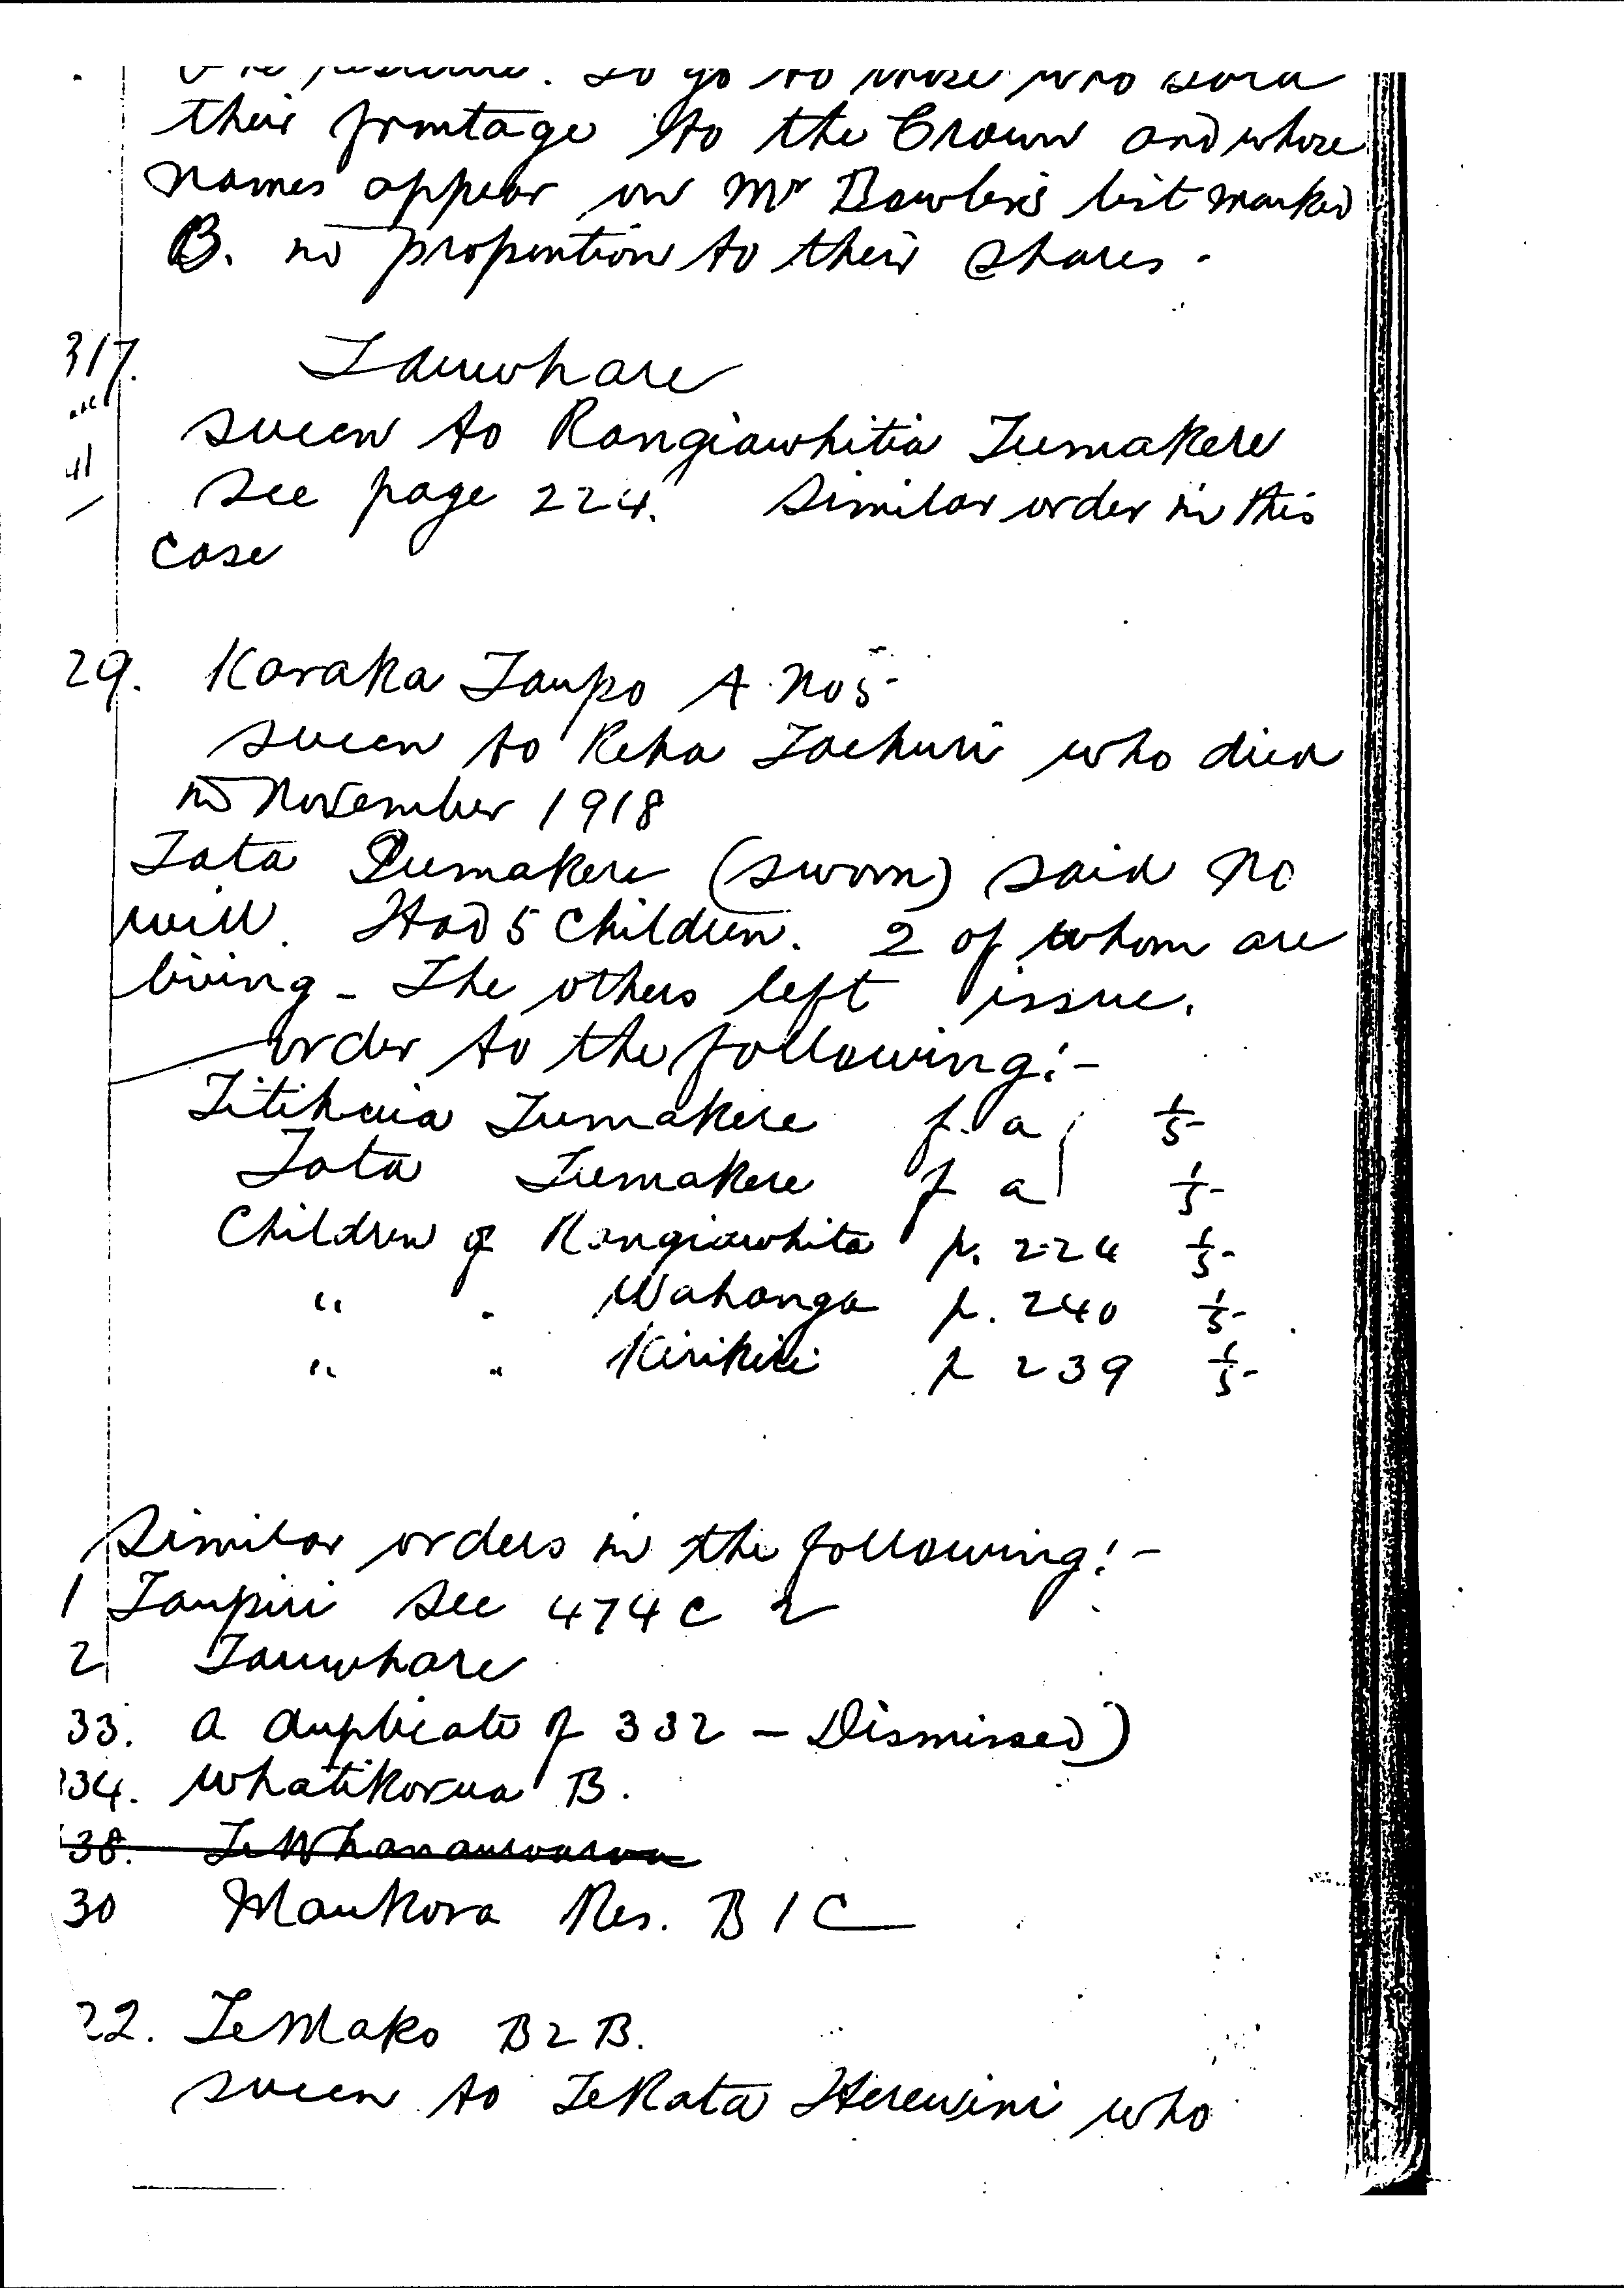 to go to those who sold
their frontage to the Crown and whose
names appear in Mr Bowler's list marked
B. in proportion to their shares.
317. Tauwhare
succn to Rangiawhitia Tumakere
see page 224. Similar order in this
case
29. Karaka Taupo A No 5
succn to Reha Taehuri who died
in November 1918
Tata Tumakere (sworn) said no
will. Had 5 children. 2 of whom are
living - The others left issue.
order to the following:-
Titihuia Tumakere f. a 1/5
Tata Tumakere f a 1/5
Children of Rangiawhita p. 224 1/5
" " Wahanga p. 240 1/5
" " Kirikiri p 239 1/5
Similar orders in the following:-
1 Taupiri see 474 C 2
2 Tauwhare
33. A duplicate of 332 - Dismissed)
34. Whatikorua B.
38. Te Whanauroaroa
30 Maukora Res. B 1 C
22. Te Mako B 2 B.
succn to Te Rata Herewini who